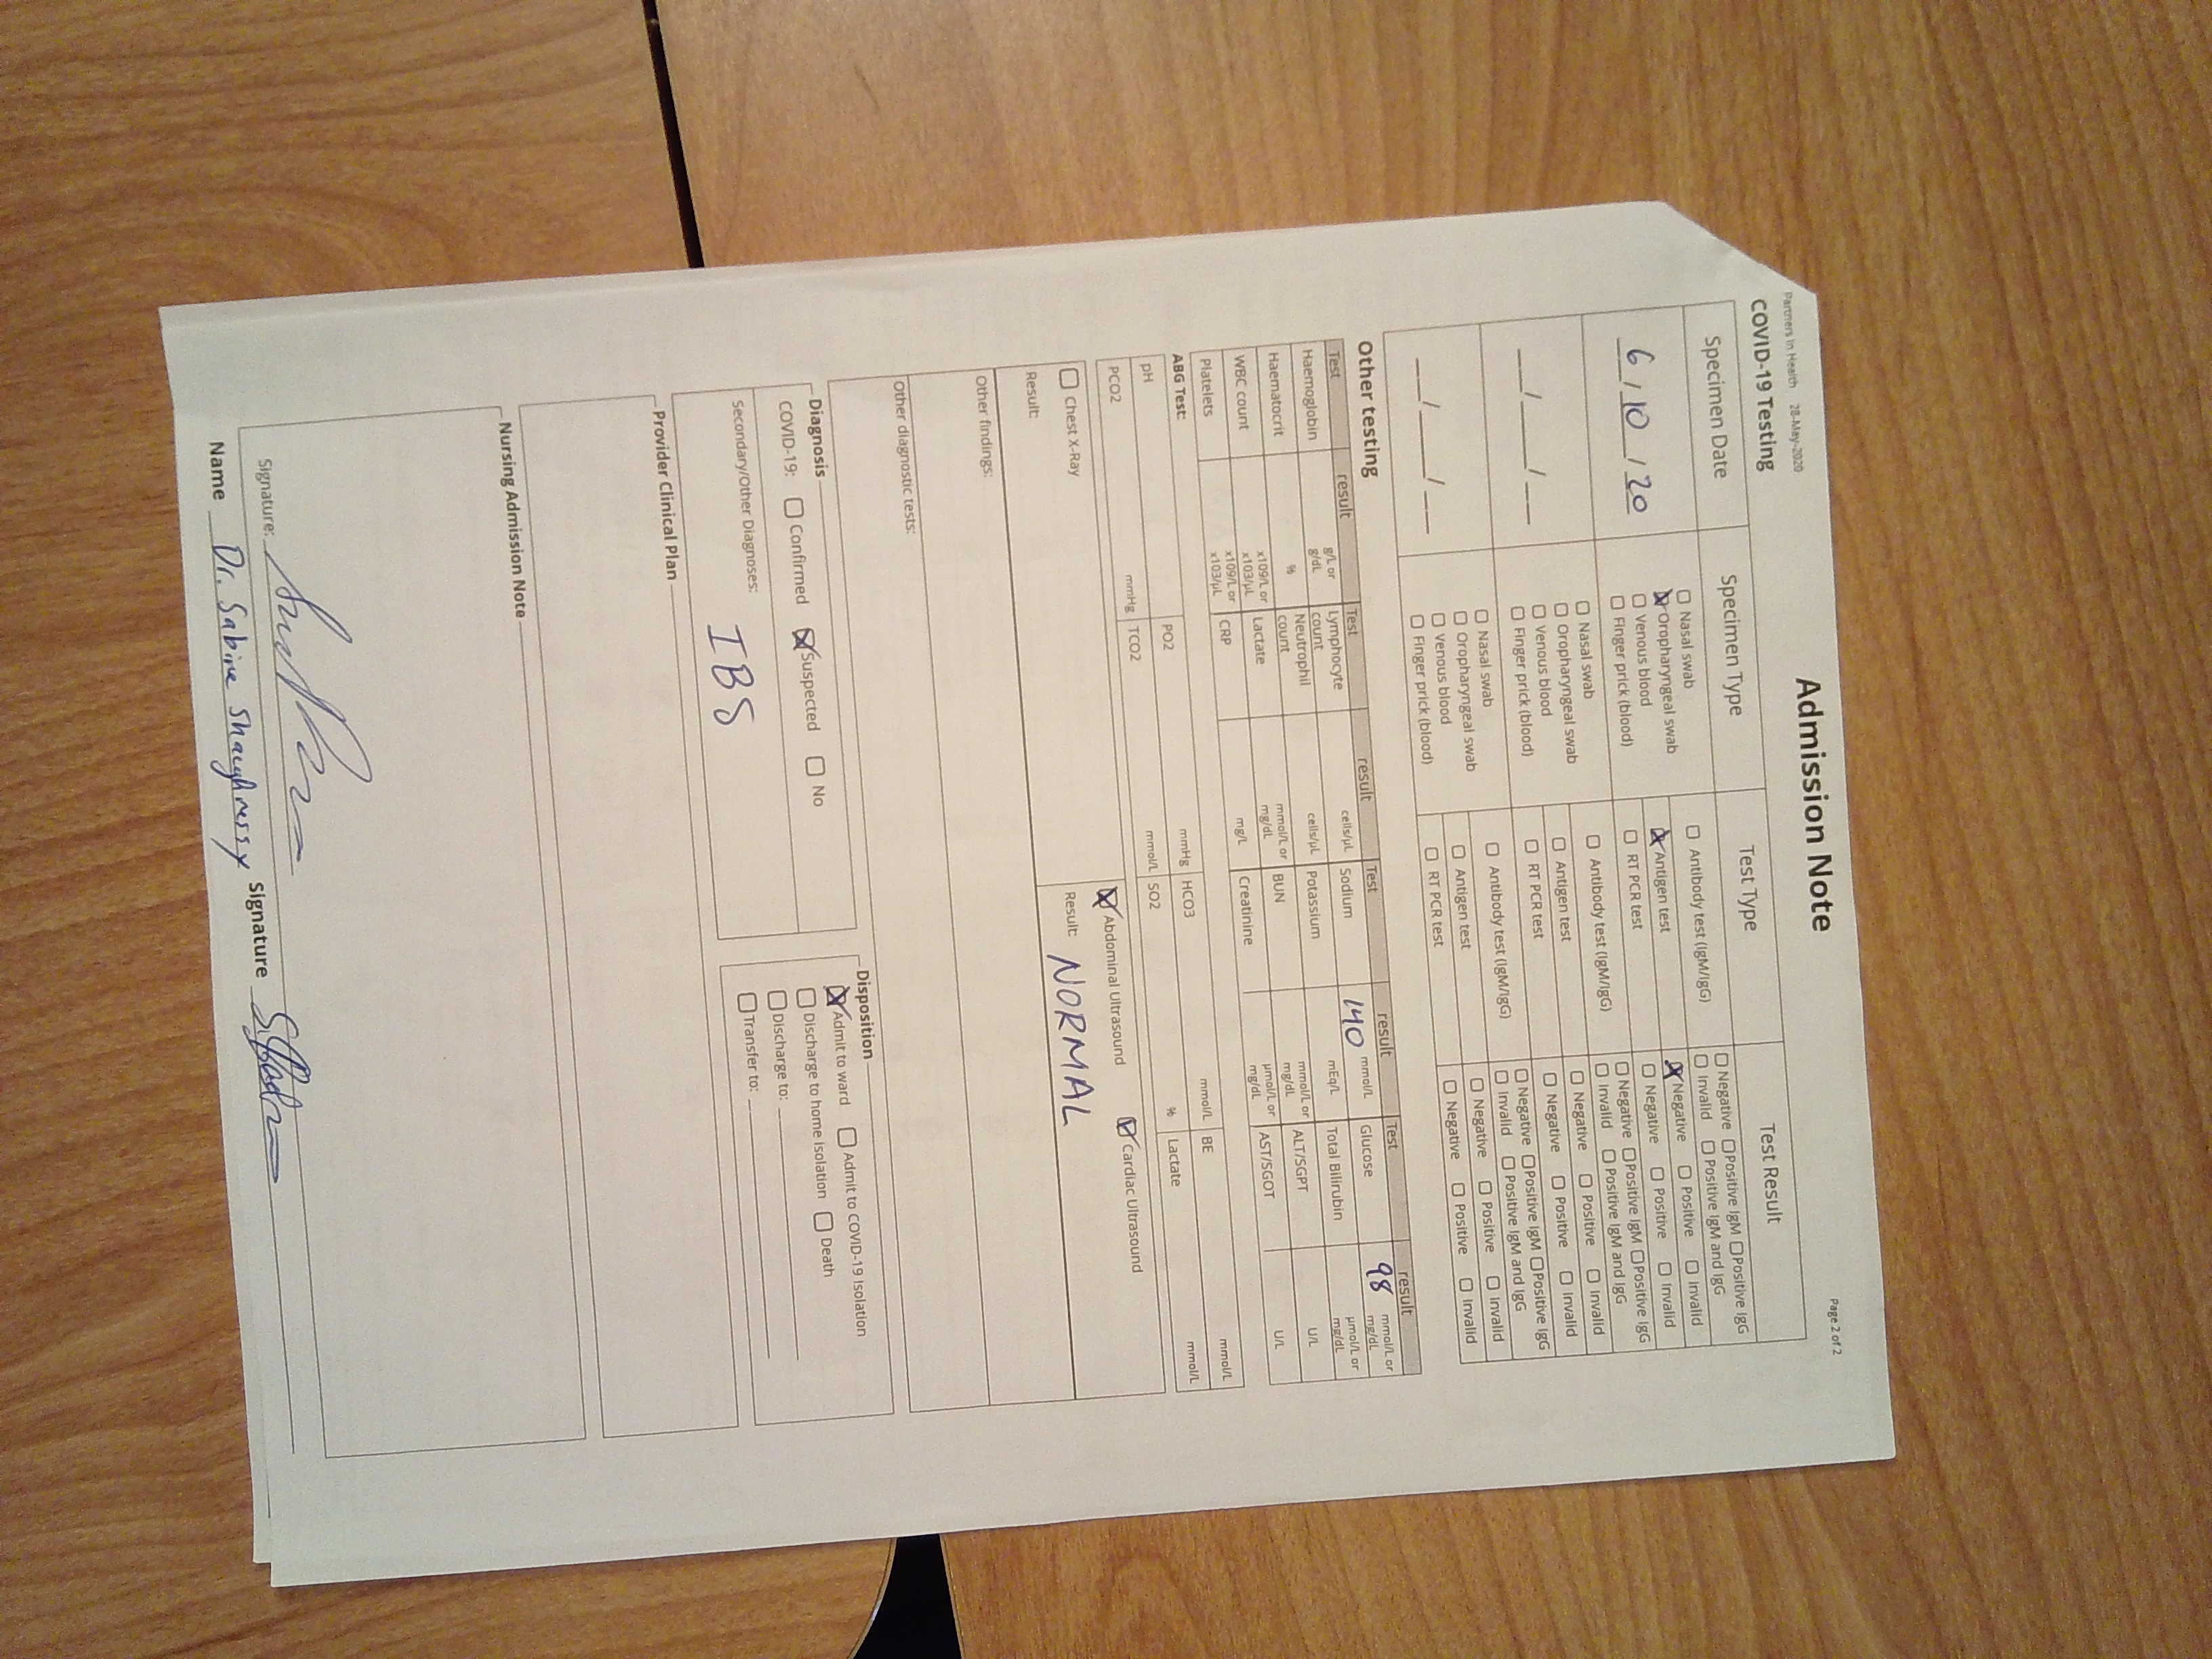 Partners In Health 28-May-2020 Page 2 of 2
Admission Note
COVID-19 Testing
Specimen Date Specimen Type Test Type Test Result
6 / 10 / 20
☐ Nasal swab
☒ Oropharyngeal swab
☐ Venous blood
☐ Finger prick (blood)
☐ Antibody test (IgM/IgG) ☐ Negative ☐ Positive IgM ☐ Positive IgG
☐ Invalid ☐ Positive IgM and IgG
☒ Antigen test ☒ Negative ☐ Positive ☐ Invalid
☐ RT PCR test ☐ Negative ☐ Positive ☐ Invalid
__/__/__
☐ Nasal swab
☐ Oropharyngeal swab
☐ Venous blood
☐ Finger prick (blood)
☐ Antibody test (IgM/IgG) ☐ Negative ☐ Positive IgM ☐ Positive IgG
☐ Invalid ☐ Positive IgM and IgG
☐ Antigen test ☐ Negative ☐ Positive ☐ Invalid
☐ RT PCR test ☐ Negative ☐ Positive ☐ Invalid
__/__/__
☐ Nasal swab
☐ Oropharyngeal swab
☐ Venous blood
☐ Finger prick (blood)
☐ Antibody test (IgM/IgG) ☐ Negative ☐ Positive IgM ☐ Positive IgG
☐ Invalid ☐ Positive IgM and IgG
☐ Antigen test ☐ Negative ☐ Positive ☐ Invalid
☐ RT PCR test ☐ Negative ☐ Positive ☐ Invalid
Other testing
Test result Test result Test result Test result
Haemoglobin g/L or g/dL Lymphocyte count cells/μL Sodium 140 mmol/L Glucose 98 mmol/L or mg/dL
Haematocrit % Neutrophil count cells/μL Potassium mEq/L Total Bilirubin μmol/L or mg/dL
WBC count x109/L or x103/μL Lactate mmol/L or mg/dL BUN mmol/L or mg/dL ALT/SGPT U/L
Platelets x109/L or x103/μL CRP mg/L Creatinine μmol/L or mg/dL AST/SGOT U/L
ABG Test:
pH PO2 mmHg HCO3 mmol/L BE mmol/L
PCO2 mmHg TCO2 mmol/L SO2 % Lactate mmol/L
☐ Chest X-Ray ☒ Abdominal Ultrasound ☒ Cardiac Ultrasound
Result: Result: NORMAL
Other findings:
Other diagnostic tests:
Diagnosis
COVID-19: ☐ Confirmed ☒ Suspected ☐ No
Secondary/Other Diagnoses:
IBS
Disposition
☒ Admit to ward ☐ Admit to COVID-19 Isolation
☐ Discharge to home isolation ☐ Death
☐ Discharge to:
☐ Transfer to:
Provider Clinical Plan
Nursing Admission Note
Signature:
Name Dr. Sabine Shaughnessy Signature